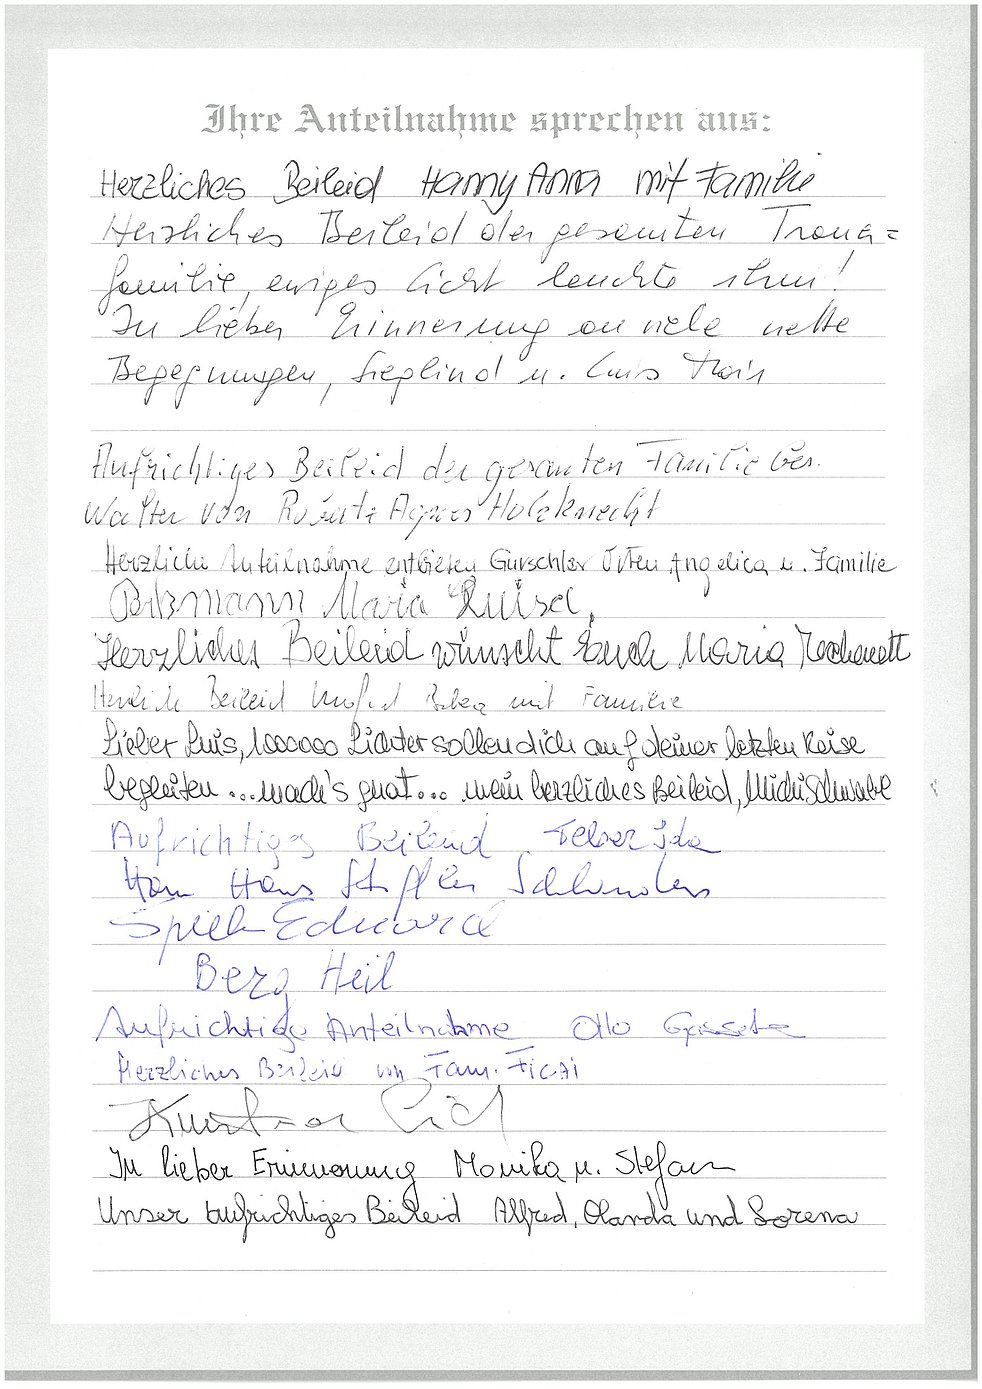 Ihre Anteilnahme sprechen aus:
Herzliches Beileid Hanny Anna mit Familie
Herzliches Beileid der gesamten Trauer=
familie, ewiges Licht leuchte ihm!
In lieber Erinnerung an viele nette
Begegnungen, Sieglind u. Luis
Aufrichtiges Beileid der gesamten Familie bes.
Walter von Agnes Holzknecht
Herzliche Anteilnahme entbieten Gurschler Angelica u. Familie
Maria Luise
Herzliches Beileid wünscht Euch Maria
Beileid mit Familie
Lieber Luis, 1000000 Lichter sollen dich auf deiner letzten Reise
begleiten ... mach's guat ... mein herzliches Beileid, Michi
Aufrichtiges Beileid Ida
Hans
Eduard
Berg Heil
Aufrichtige Anteilnahme Otto
Herzliches Beileid von Fam. Ficai
In lieber Erinnerung Monika u. Stefan
Unser aufrichtiges Beileid Alfred, Olanda und Lorena